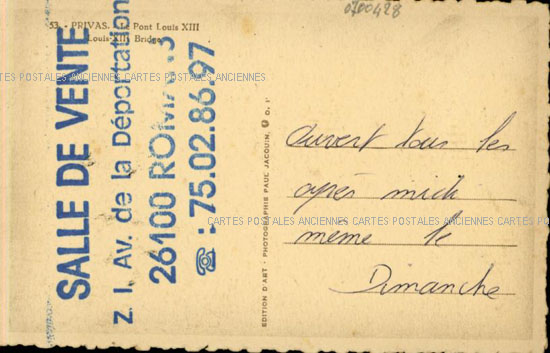 0700428
53. - PRIVAS. - Le Pont Louis XIII
Louis XIII Bridge
CARTES POSTALES ANCIENNES CARTES POSTALES ANCIENNES
SALLE DE VENTE
Z. I. Av. de la Déportation
26100 ROMANS
☎ : 75.02.86.97
EDITION D'ART - PHOTOGRAPHIE PAUL JACQUIN,
ouvert tous les
après midi
même le
Dimanche
CARTES POSTALES ANCIENNES CARTES POSTALES ANCIENNES CARTES